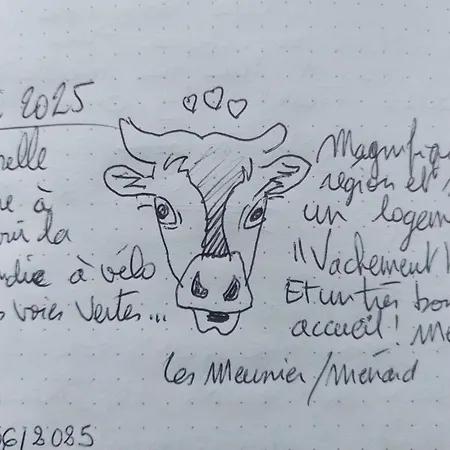 2025
à
à vélo
voies vertes...
Magnifiq
région et
un logem
"Vachement
Et un très bon
accueil! Me
Les Meunier/Ménard
06/2025